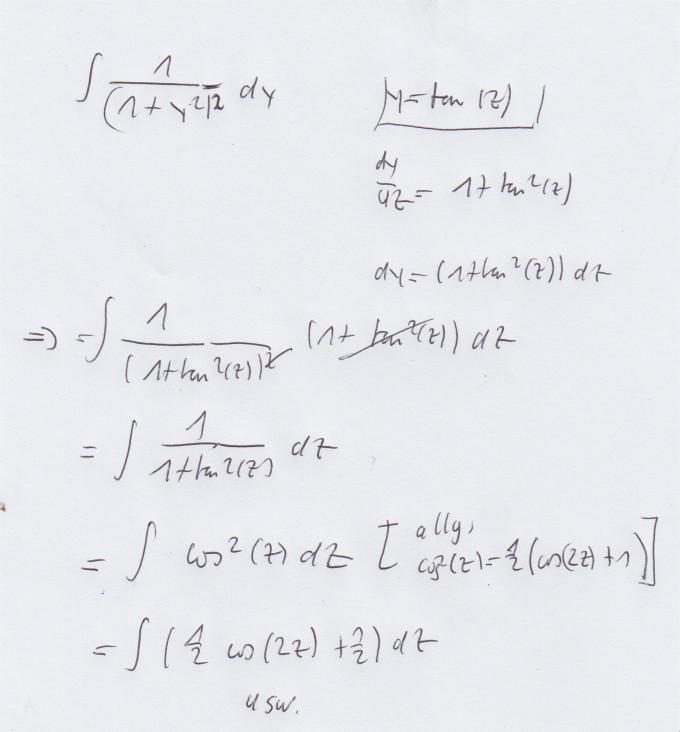 ∫ 1/(1+y²)² dy
y = tan(z)
dy/dz = 1+tan²(z)
dy = (1+tan²(z)) dz
=> = ∫ 1/(1+tan²(z))² (1+tan²(z)) dz
= ∫ 1/(1+tan²(z)) dz
= ∫ cos²(z) dz [ allg. cos²(z) = 1/2 (cos(2z) + 1) ]
= ∫ (1/2 cos(2z) + 1/2) dz
usw.